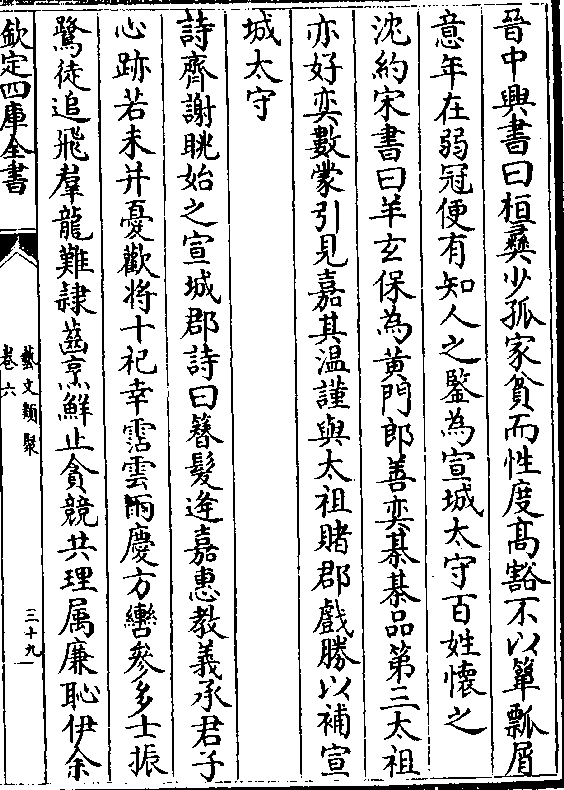 晉中興書曰桓彝少孤家貧而性度高豁不以簞瓢屑
意年在弱冠便有知人之鑒為宣城太守百姓懷之
沈約宋書曰羊玄保為黃門郎善奕棊棊品第三太祖
亦好奕數蒙引見嘉其温謹與太祖賭郡戲勝以補宣
城太守
詩齊謝眺始之宣城郡詩曰簪髮逢嘉惠教義承君子
心跡若未并憂歡将十祀幸霑雲雨慶方轡參多士振
鷺徒追飛羣龍難隷齒烹鮮止貪競共理属廉恥伊余
欽定四庫全書
藝文類聚
卷六
三十九